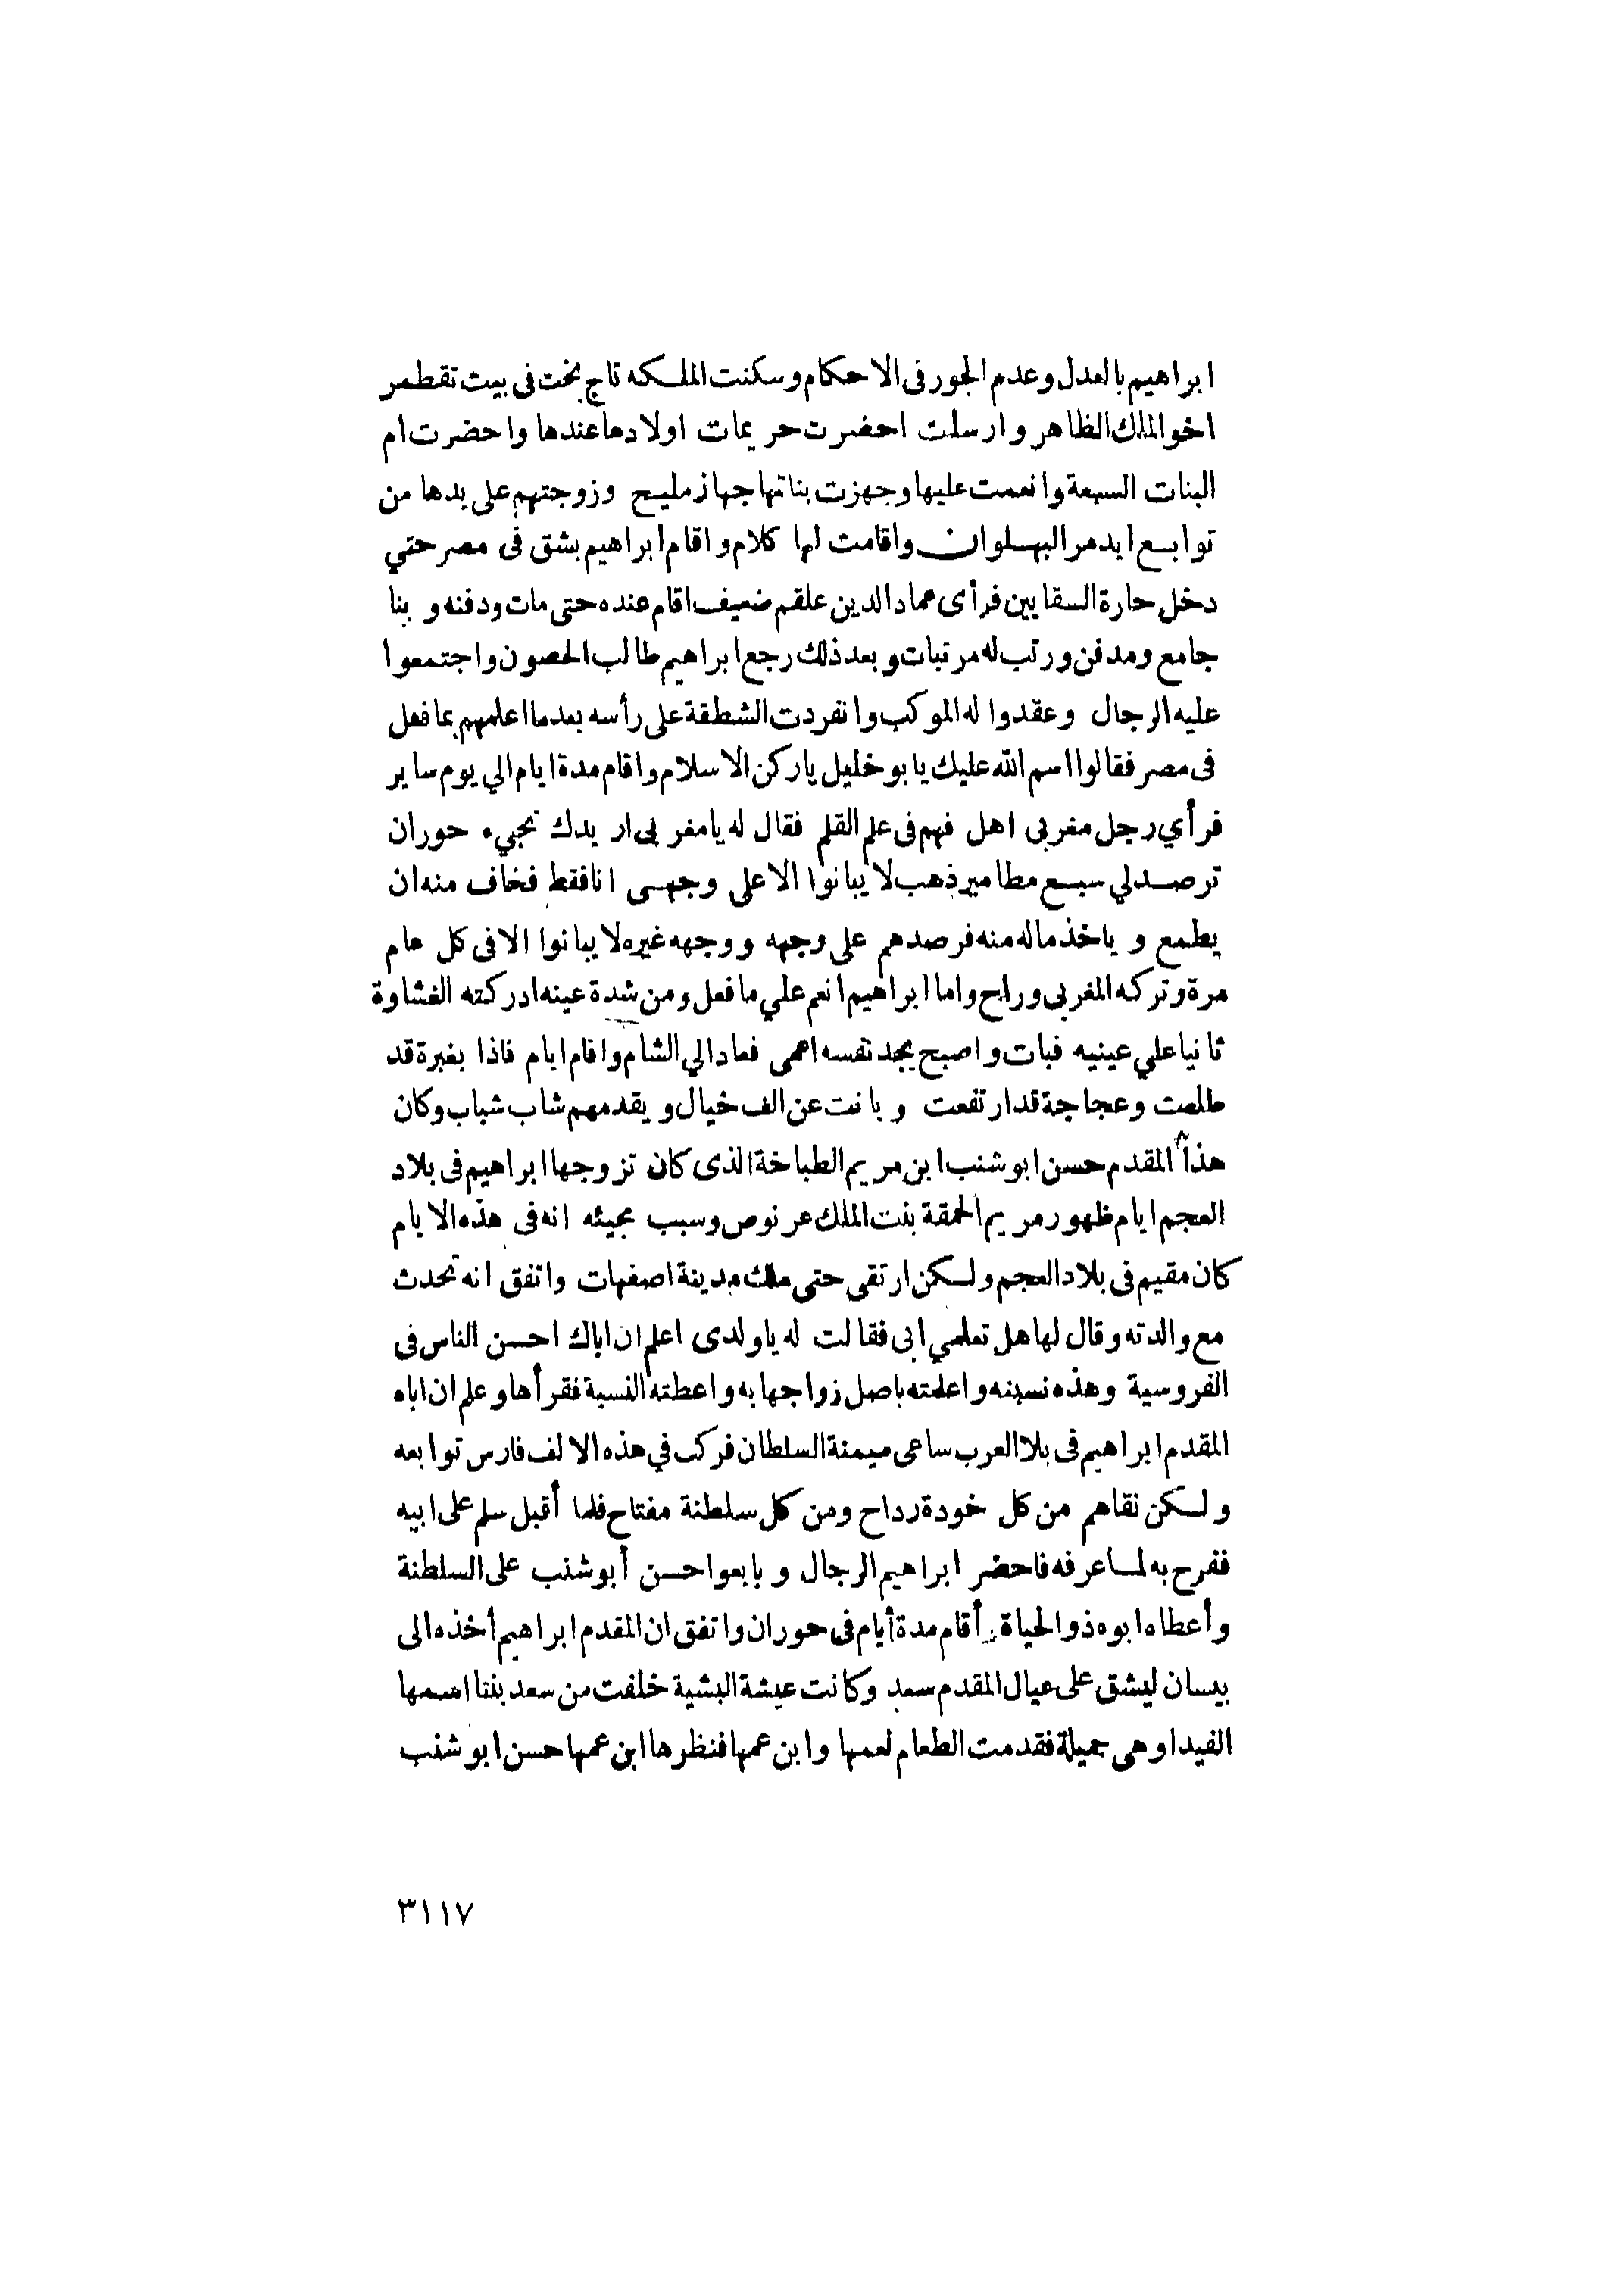 ابراهيم بالعدل وعدم الجور فى الاحكام وسكنت الملكه تاج بخت فى بيت تقطمر
اخو الملك الظاهر وارسلت احضرت حريمات اولادها عندها واحضرت ام
البنات السبعة وانعمت عليها وجهزت بناتها جهاز مليح وزوجتهم على يدها من
توابع ايدمر البهلوان واقامت لها كلام واقام ابراهيم بشق فى مصر حتي
دخل حارة السقايين فرأى عماد الدين علقم ضعيف اقام عنده حتى مات ودفنه وبنا
جامع ومدفن ورتب له مرتبات وبعد ذلك رجع ابراهيم طالب الحصون واجتمعوا
عليه الرجال وعقدوا له الموكب وانفردت الشطقة على رأسه بعد ما اعلمهم بما فعل
فى مصر فقالوا اسم الله عليك يابو خليل ياركن الاسلام واقام مدة ايام الي يوم ساير
فرأي رجل مغربى اهل فهم فى علم القلم فقال له يامغربى اريدك تجيء حوران
ترصد لي سبع مطامير ذهب لا يبانوا الا على وجهى انا فقط فخاف منه ان
يطمع وياخذ ماله منه فرصدهم على وجهه ووجهه غيره لا يبانوا الا فى كل عام
مرة وتركه المغربى وراح واما ابراهيم انعم علي ما فعل ومن شدة عينه ادركته الغشاوة
ثانيا علي عينيه فبات واصبح يجد نفسه اعمى فعاد الي الشام واقام ايام فاذا بغبرة قد
طلعت وعجاجة قد ارتفعت وبانت عن الف خيال ويقدمهم شاب شباب وكان
هذا المقدم حسن ابو شنب ابن مريم الطباخة الذى كان تزوجها ابراهيم فى بلاد
العجم ايام ظهور مريم الحمقة بنت الملك عرنوص وسبب مجيئه انه فى هذه الايام
كان مقيم فى بلاد العجم ولكن ارتقى حتى ملك مدينة اصفهات واتفق انه تحدث
مع والدته وقال لها هل تعلمي ابى فقالت له ياولدى اعلم ان اباك احسن الناس فى
الفروسية وهذه نسبنه واعلمته باصل زواجها به واعطته النسبة فقرأها وعلم ان اباه
المقدم ابراهيم فى بلا العرب ساعى ميمنة السلطان فركب في هذه الالف فارس توابعه
ولكن نقاهم من كل خودة رداح ومن كل سلطنة مفتاح فلما أقبل سلم على ابيه
ففرح به لما عرفه فاحضر ابراهيم الرجال وبايعوا حسن أبو شنب على السلطنة
وأعطاه ابوه ذو الحياة وأقام مدة أيام فى حوران واتفق ان المقدم ابراهيم أخذه الى
بيسان ليشق على عيال المقدم سعد وكانت عيشة البشية خلفت من سعد بنتا اسمها
الفيدا وهى جميلة فقدمت الطعام لعمها وابن عمها فنظرها ابن عمها حسن ابو شنب
٣١١٧